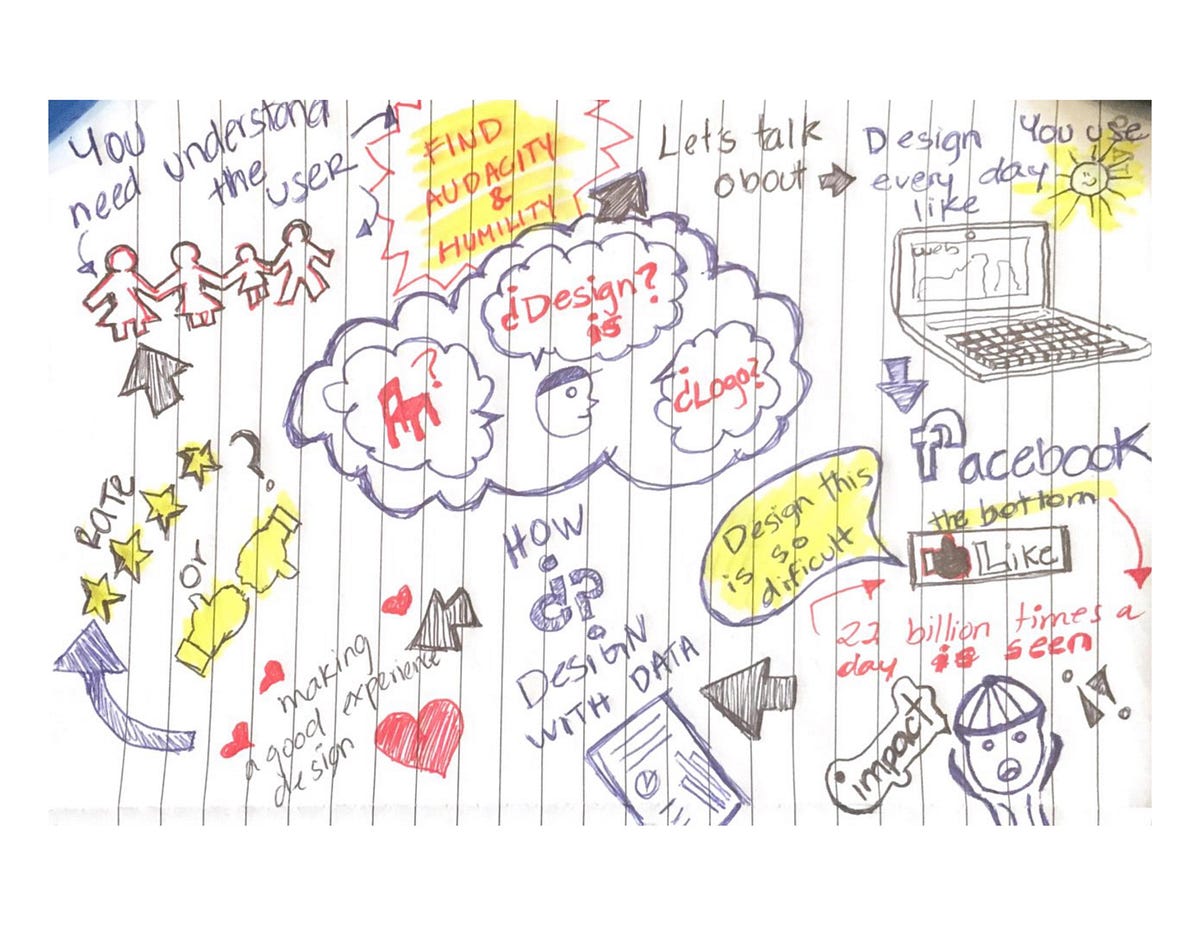 You
need understand
the user
FIND
AUDACITY
&
HUMILITY
Let's talk
about
Design You use
every day
like
web
¿Design?
is
Art?
¿Logo?
Facebook
the bottom
Like
Design this
is so
dificult
22 billion times a
day is seen
impact
¡!
HOW
¿?
DESIGN
WITH DATA
making
a good experience
design
RATE
or
?